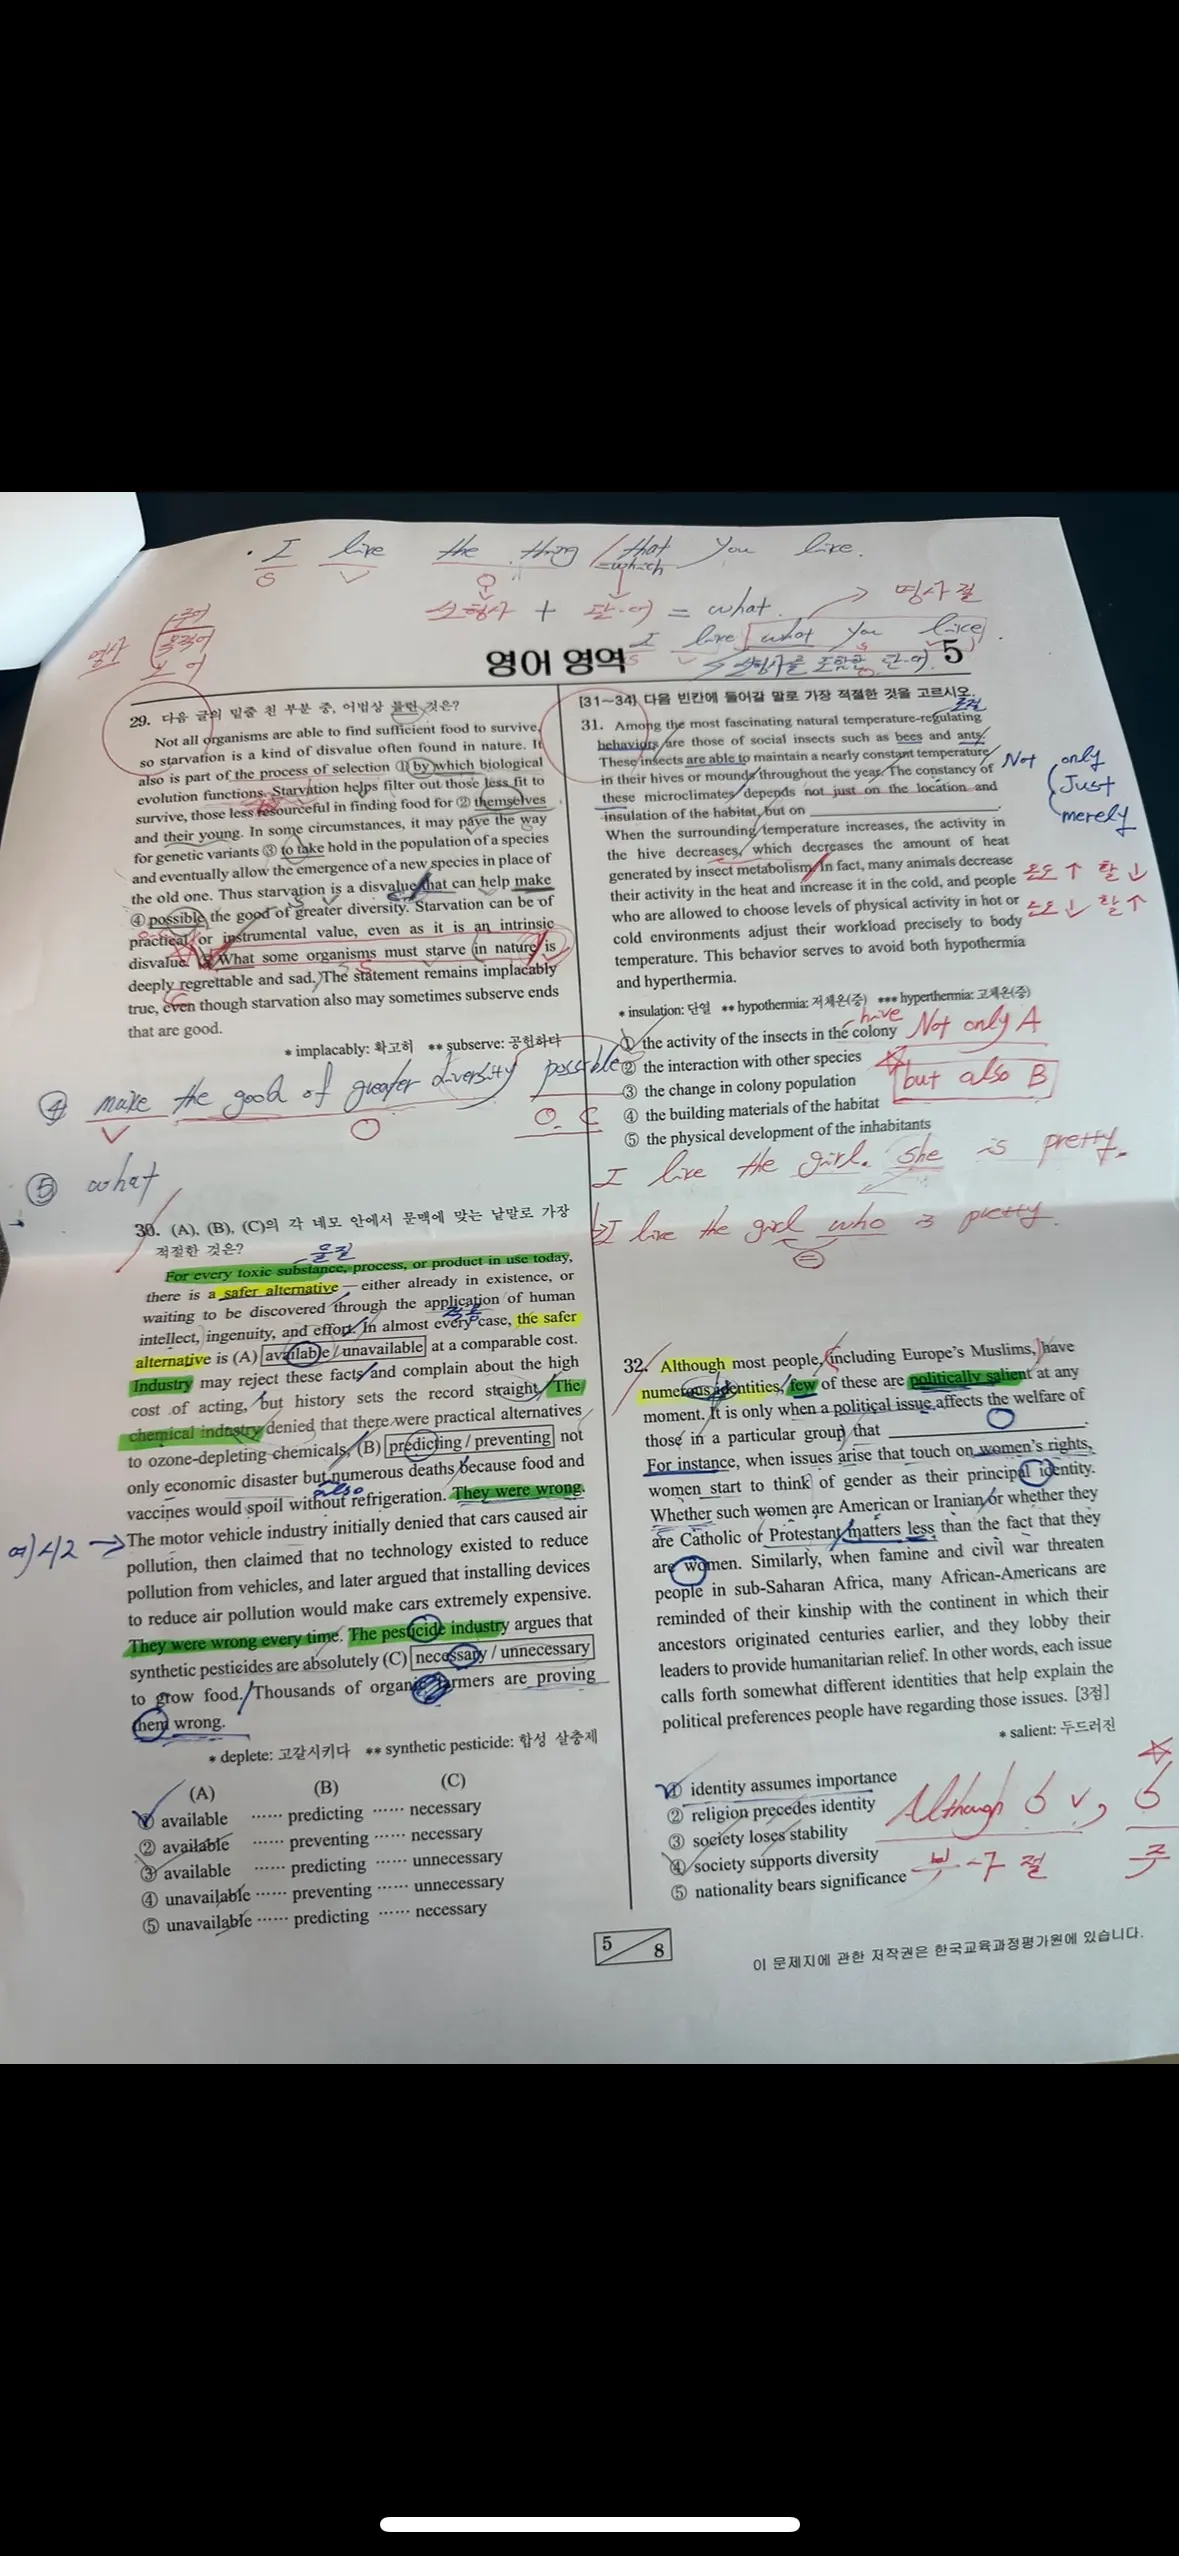 · I like the thing / that you like.
=which
S V O
선행사 + 관·어 = what.
명사절
명사
주어
목적어
보어
I like what you like.
S V
선행사를 포함한 관·어
영어 영역
5
29. 다음 글의 밑줄 친 부분 중, 어법상 틀린 것은?
Not all organisms are able to find sufficient food to survive,
so starvation is a kind of disvalue often found in nature. It
also is part of the process of selection ① by which biological
evolution functions. Starvation helps filter out those less fit to
survive, those less resourceful in finding food for ② themselves
and their young. In some circumstances, it may pave the way
for genetic variants ③ to take hold in the population of a species
and eventually allow the emergence of a new species in place of
the old one. Thus starvation is a disvalue that can help make
④ possible the good of greater diversity. Starvation can be of
practical or instrumental value, even as it is an intrinsic
disvalue. ⑤ What some organisms must starve in nature is
deeply regrettable and sad. The statement remains implacably
true, even though starvation also may sometimes subserve ends
that are good.
* implacably: 확고히 ** subserve: 공헌하다
④ make the good of greater diversity possible
V O O.C
⑤ what
30. (A), (B), (C)의 각 네모 안에서 문맥에 맞는 낱말로 가장
적절한 것은?
물질
For every toxic substance, process, or product in use today,
there is a safer alternative — either already in existence, or
waiting to be discovered through the application of human
적용
intellect, ingenuity, and effort. In almost every case, the safer
alternative is (A) available / unavailable at a comparable cost.
Industry may reject these facts and complain about the high
cost of acting, but history sets the record straight. The
chemical industry denied that there were practical alternatives
to ozone-depleting chemicals, (B) predicting / preventing not
only economic disaster but numerous deaths because food and
also
vaccines would spoil without refrigeration. They were wrong.
예시2 → The motor vehicle industry initially denied that cars caused air
pollution, then claimed that no technology existed to reduce
pollution from vehicles, and later argued that installing devices
to reduce air pollution would make cars extremely expensive.
They were wrong every time. The pesticide industry argues that
synthetic pesticides are absolutely (C) necessary / unnecessary
to grow food. Thousands of organic farmers are proving
them wrong.
* deplete: 고갈시키다 ** synthetic pesticide: 합성 살충제
(A) (B) (C)
① available …… predicting …… necessary
② available …… preventing …… necessary
③ available …… predicting …… unnecessary
④ unavailable …… preventing …… unnecessary
⑤ unavailable …… predicting …… necessary
[31~34] 다음 빈칸에 들어갈 말로 가장 적절한 것을 고르시오.
조절
31. Among the most fascinating natural temperature-regulating
behaviors are those of social insects such as bees and ants.
These insects are able to maintain a nearly constant temperature
in their hives or mounds throughout the year. The constancy of
these microclimates depends not just on the location and
insulation of the habitat, but on ____________.
When the surrounding temperature increases, the activity in
the hive decreases, which decreases the amount of heat
generated by insect metabolism. In fact, many animals decrease
their activity in the heat and increase it in the cold, and people
who are allowed to choose levels of physical activity in hot or
cold environments adjust their workload precisely to body
temperature. This behavior serves to avoid both hypothermia
and hyperthermia.
Not only
Just
merely
온도 ↑ 활 ↓
온도 ↓ 활 ↑
* insulation: 단열 ** hypothermia: 저체온(증) *** hyperthermia: 고체온(증)
hive
① the activity of the insects in the colony
② the interaction with other species
③ the change in colony population
④ the building materials of the habitat
⑤ the physical development of the inhabitants
Not only A
but also B
I like the girl. she is pretty.
I like the girl who is pretty.
=
32. Although most people, including Europe's Muslims, have
numerous identities, few of these are politically salient at any
moment. It is only when a political issue affects the welfare of
those in a particular group that ____________.
For instance, when issues arise that touch on women's rights,
women start to think of gender as their principal identity.
Whether such women are American or Iranian or whether they
are Catholic or Protestant matters less than the fact that they
are women. Similarly, when famine and civil war threaten
people in sub-Saharan Africa, many African-Americans are
reminded of their kinship with the continent in which their
ancestors originated centuries earlier, and they lobby their
leaders to provide humanitarian relief. In other words, each issue
calls forth somewhat different identities that help explain the
political preferences people have regarding those issues. [3점]
* salient: 두드러진
① identity assumes importance
② religion precedes identity
③ society loses stability
④ society supports diversity
⑤ nationality bears significance
Although S V, S
부사절 주
5
8
이 문제지에 관한 저작권은 한국교육과정평가원에 있습니다.